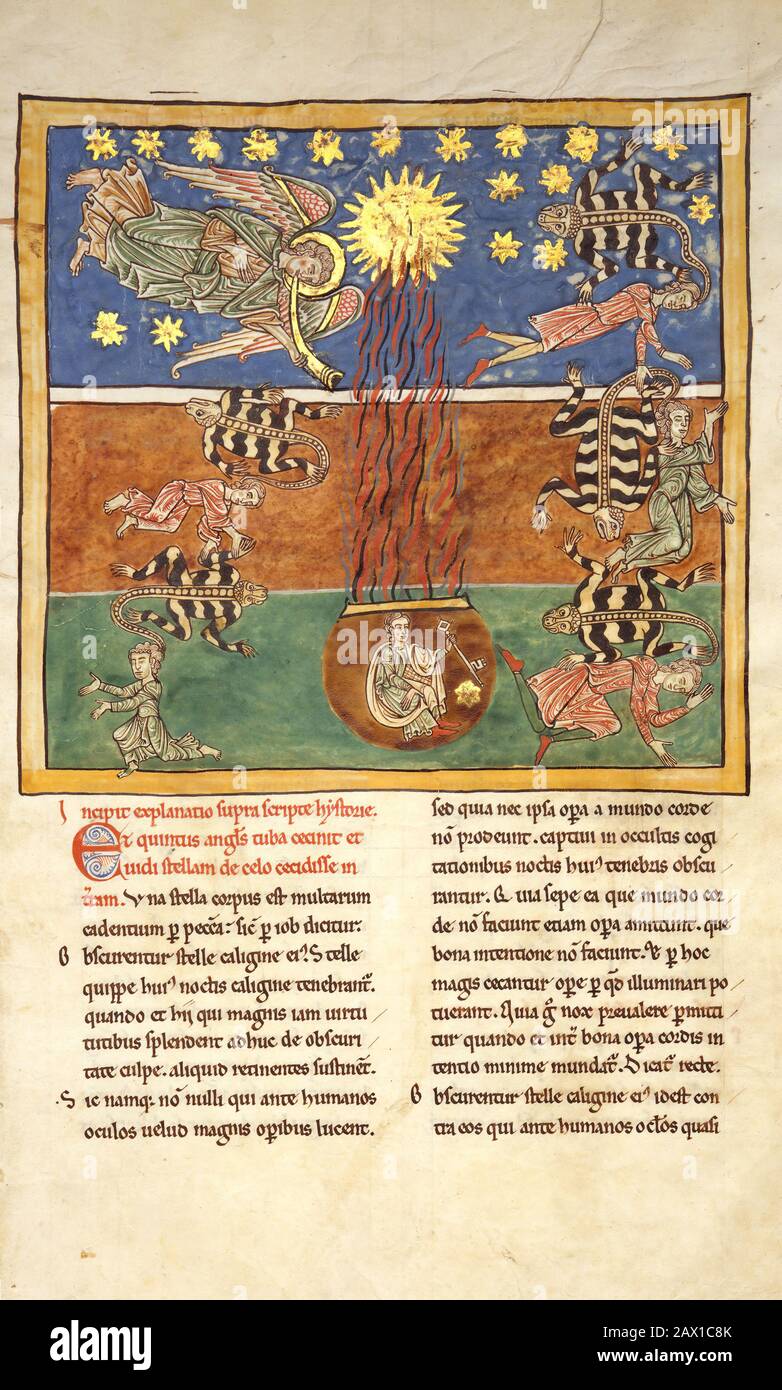 Incipit explanatio supra scripte hystorie.
Et quintus angl̄s tuba cecinit et
uidi stellam de celo cecidisse in
t̄ram. Una stella corpus est multarum
cadentium p̱ pecc̄a. sic̄ p̱ iob dicitur.
Obscurentur stelle caligine ei⁹. Stelle
quippe hui⁹ noctis caligine tenebrant̄.
quando et hij qui magnis iam uirtu
tutibus splendent adhuc de obscuri
tate culpe. aliquid retinentes sustinēt.
Sic namq. nō nulli qui ante humanos
oculos uelud magnis op̱ibus lucent.
sed quia nec ipsa op̱a a mundo corde
nō prodeunt. captiui in occultis cogi
tationibus noctis hui⁹ tenebris obscu
rantur. Quia sepe ea que mundo cor
de nō faciunt etiam op̱a amittunt. que
bona intentione nō faciunt. Et p̱ hoc
magis cecantur ope p̱ qd̄ illuminari po
tuerant. Quia g̊ nox preualere p̱mitti
tur quando et int̄ bona op̱a cordis in
tentio minime mundat̄. Dicat̄ recte.
Obscurentur stelle caligine ei⁹ idest con
tra eos qui ante humanos oclōs quasi
alamy
alamy
Image ID: 2AX1C8K
www.alamy.com